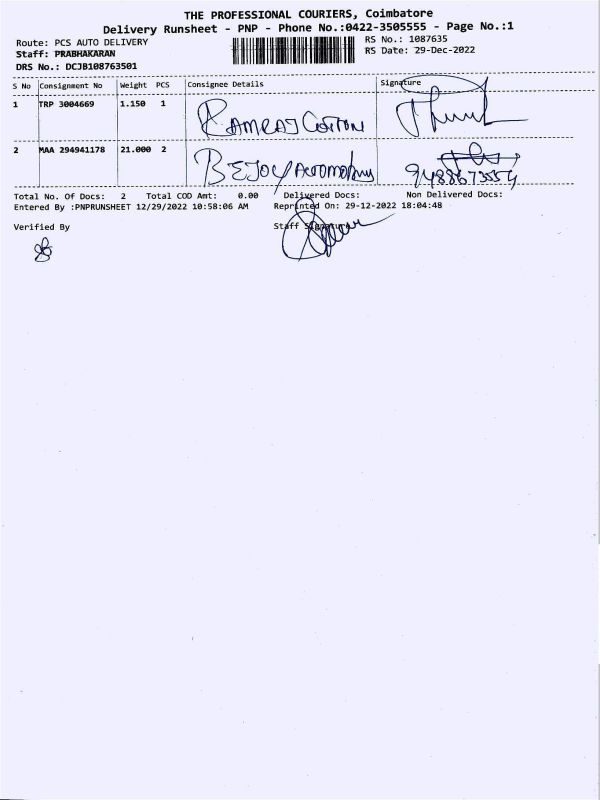 THE PROFESSIONAL COURIERS, Coimbatore
Delivery Runsheet - PNP - Phone No.:0422-3505555 - Page No.:1
Route: PCS AUTO DELIVERY
Staff: PRABHAKARAN
DRS No.: DCJB108763501
RS No.: 1087635
RS Date: 29-Dec-2022
S No Consignment No Weight PCS Consignee Details Signature
1 TRP 3004669 1.150 1 RAMRAJ COTTON
2 MAA 294941178 21.000 2 BEJOY
Total No. Of Docs: 2 Total COD Amt: 0.00 Delivered Docs: Non Delivered Docs:
Entered By :PNPRUNSHEET 12/29/2022 10:58:06 AM Reprinted On: 29-12-2022 18:04:48
Verified By Staff Signature